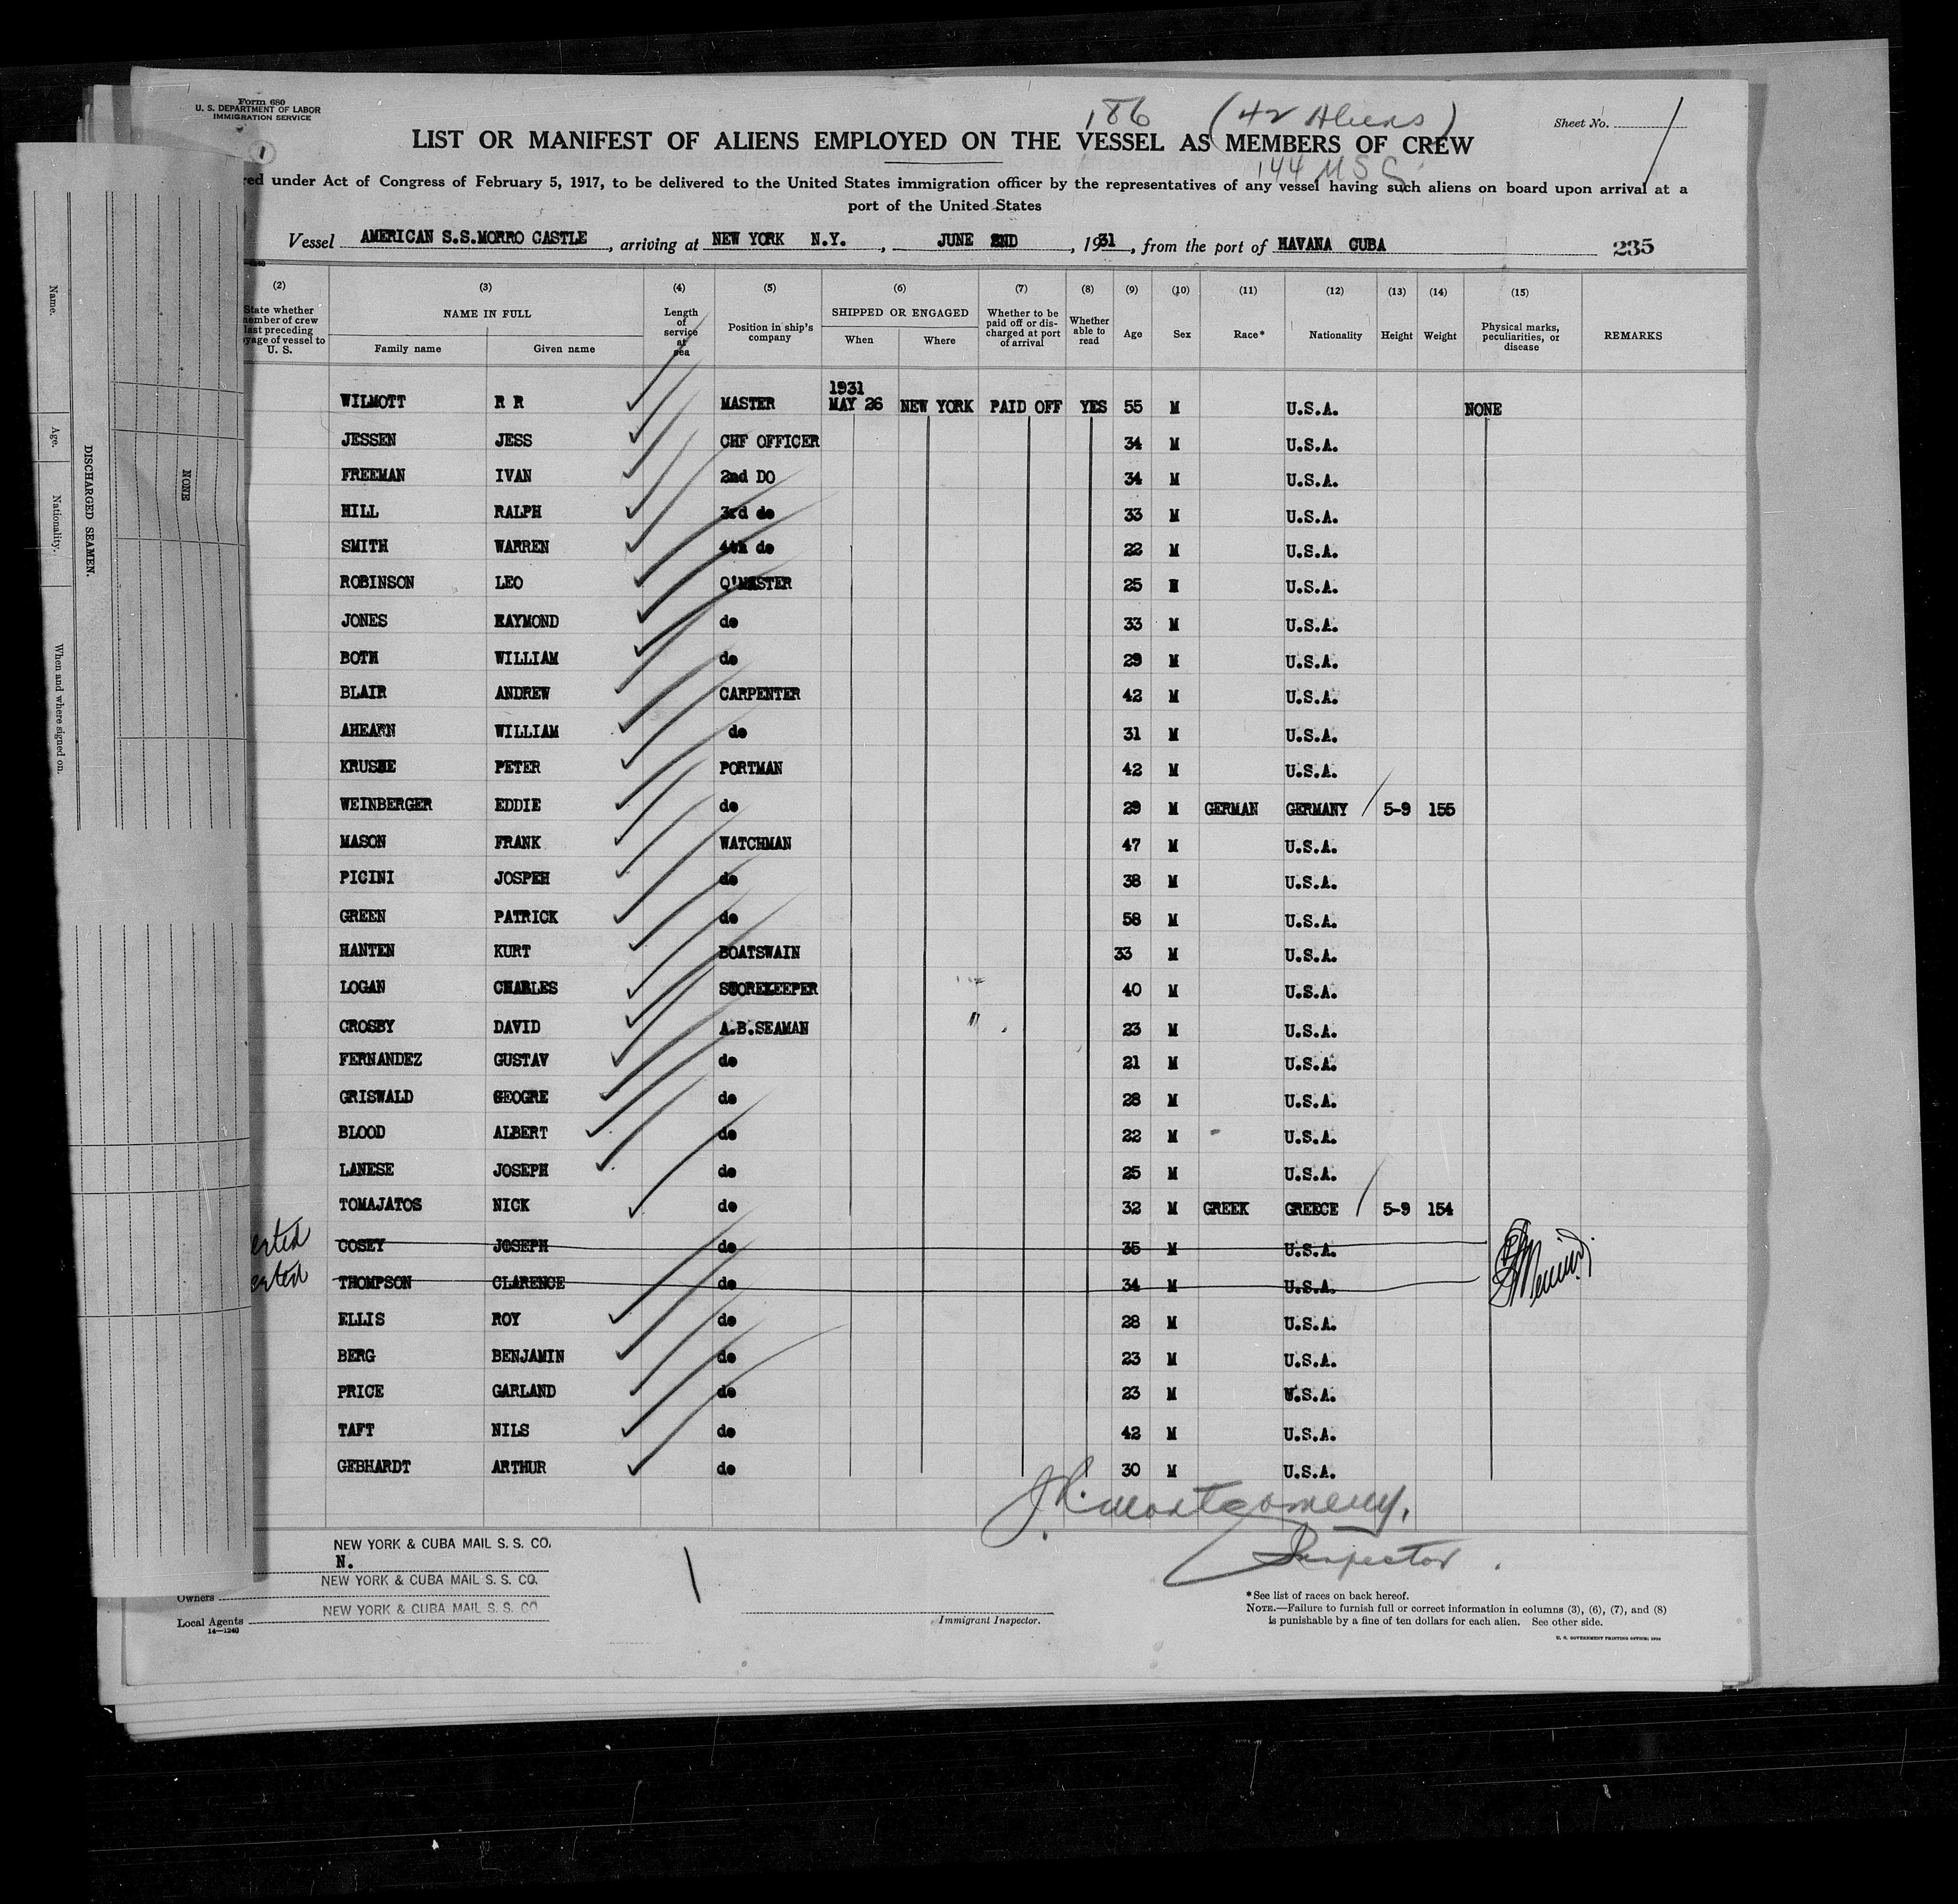 Form 680
U. S. DEPARTMENT OF LABOR
IMMIGRATION SERVICE
186 (42 Aliens)
Sheet No. 1
LIST OR MANIFEST OF ALIENS EMPLOYED ON THE VESSEL AS MEMBERS OF CREW
144 USC
red under Act of Congress of February 5, 1917, to be delivered to the United States immigration officer by the representatives of any vessel having such aliens on board upon arrival at a
port of the United States
Vessel AMERICAN S.S.MORRO CASTLE, arriving at NEW YORK N.Y., JUNE 2ND, 1931, from the port of HAVANA CUBA 235
(2) (3) (4) (5) (6) (7) (8) (9) (10) (11) (12) (13) (14) (15)
State whether member of crew last preceding voyage of vessel to U. S. NAME IN FULL Family name Given name Length of service at sea Position in ship's company SHIPPED OR ENGAGED When Where Whether to be paid off or discharged at port of arrival Whether able to read Age Sex Race* Nationality Height Weight Physical marks, peculiarities, or disease REMARKS
1931
WILMOTT R R MASTER MAY 26 NEW YORK PAID OFF YES 55 M U.S.A. NONE
JESSEN JESS CHF OFFICER 34 M U.S.A.
FREEMAN IVAN 2nd DO 34 M U.S.A.
HILL RALPH 3rd do 33 M U.S.A.
SMITH WARREN 4th do 22 M U.S.A.
ROBINSON LEO Q'MASTER 25 M U.S.A.
JONES RAYMOND do 33 M U.S.A.
BOTH WILLIAM do 29 M U.S.A.
BLAIR ANDREW CARPENTER 42 M U.S.A.
AHEARN WILLIAM do 31 M U.S.A.
KRUSHE PETER PORTMAN 42 M U.S.A.
WEINBERGER EDDIE do 29 M GERMAN GERMANY 5-9 155
MASON FRANK WATCHMAN 47 M U.S.A.
PICINI JOSPEH do 38 M U.S.A.
GREEN PATRICK do 58 M U.S.A.
HANTEN KURT BOATSWAIN 33 M U.S.A.
LOGAN CHARLES STOREKEEPER 40 M U.S.A.
CROSBY DAVID A.B.SEAMAN 23 M U.S.A.
FERNANDEZ GUSTAV do 21 M U.S.A.
GRISWALD GEOGRE do 28 M U.S.A.
BLOOD ALBERT do 22 M U.S.A.
LANESE JOSEPH do 25 M U.S.A.
TOMAJATOS NICK do 32 M GREEK GREECE 5-9 154
erted COSEY JOSEPH do 35 M U.S.A.
erted THOMPSON CLARENCE do 34 M U.S.A.
ELLIS ROY do 28 M U.S.A.
BERG BENJAMIN do 23 M U.S.A.
PRICE GARLAND do 23 M U.S.A.
TAFT NILS do 42 M U.S.A.
GEBHARDT ARTHUR do 30 M U.S.A.
J R. Montgomery.
Inspector.
NEW YORK & CUBA MAIL S. S. CO.
N.
NEW YORK & CUBA MAIL S. S. CO.
Owners
NEW YORK & CUBA MAIL S. S. CO
Local Agents
14—1240
Immigrant Inspector.
*See list of races on back hereof.
NOTE.—Failure to furnish full or correct information in columns (3), (6), (7), and (8)
is punishable by a fine of ten dollars for each alien. See other side.
Name.
Age.
Nationality.
When and where signed on.
DISCHARGED SEAMEN.
NONE